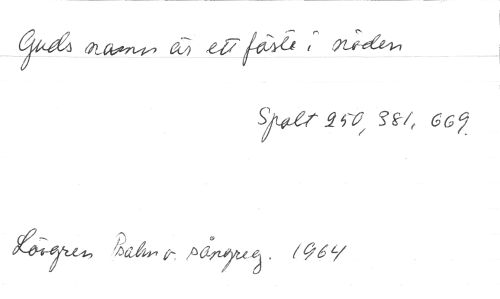 Guds namn är ett fäste i nöden
Spalt 250, 381, 669.
Lövgren Psalm o. sångreg. 1964